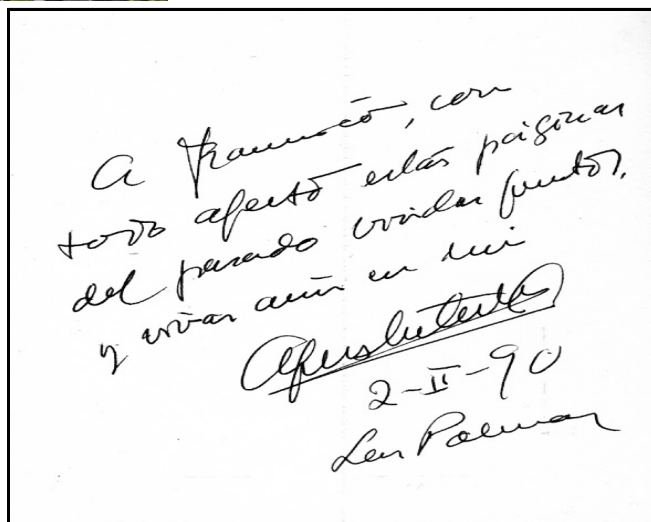 A , con
todo afecto estas páginas
del pasado vividas juntos,
y vivas aún en mi
2-II-90
Las Palmas